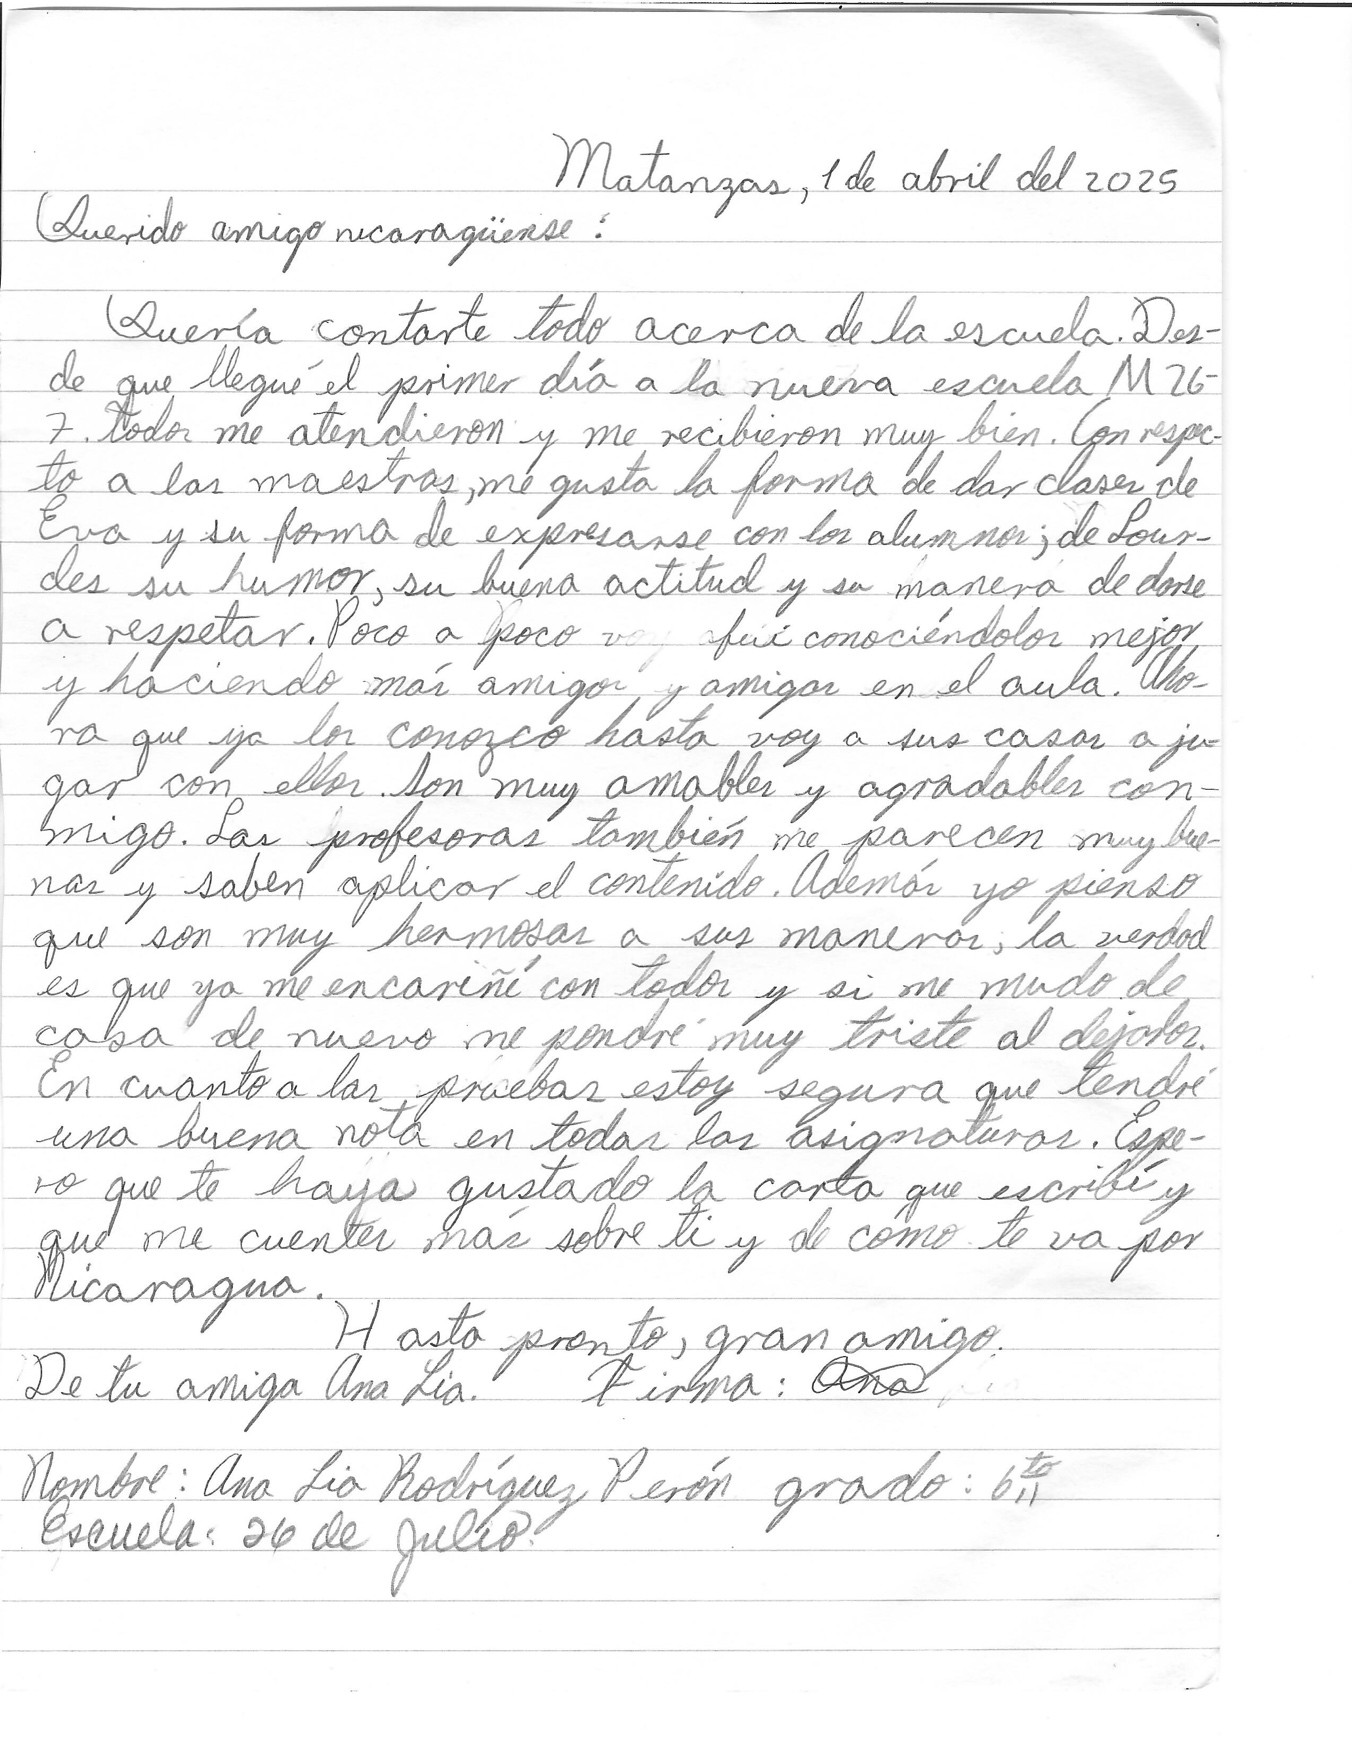 Matanzas, 1 de abril del 2025
Querido amigo nicaragüense:
Quería contarte todo acerca de la escuela. Des-
de que llegué el primer día a la nueva escuela M 26-
7. todos me atendieron y me recibieron muy bien. Con respec-
to a las maestras, me gusta la forma de dar clases de
Eva y su forma de expresarse con los alumnos; de Lour-
des su humor, su buena actitud y su manera de darse
a respetar. Poco a poco fui conociéndolos mejor
y haciendo más amigos y amigas en el aula. Aho-
ra que ya los conozco hasta voy a sus casas a ju-
gar con ellos. Son muy amables y agradables con-
migo. Las profesoras también me parecen muy bue-
nas y saben aplicar el contenido. Además yo pienso
que son muy hermosas a sus maneras, la verdad
es que ya me encariñé con todos y si me mudo de
casa de nuevo me pondré muy triste al dejarlos.
En cuanto a las pruebas estoy segura que tendré
una buena nota en todas las asignaturas. Espe-
ro que te haya gustado la carta que escribí y
que me cuentes más sobre ti y de cómo te va por
Nicaragua.
Hasta pronto, gran amigo.
De tu amiga Ana Lia. Firma: Ana
Nombre: Ana Lia Rodríguez Perón grado: 6to
Escuela: 26 de Julio.